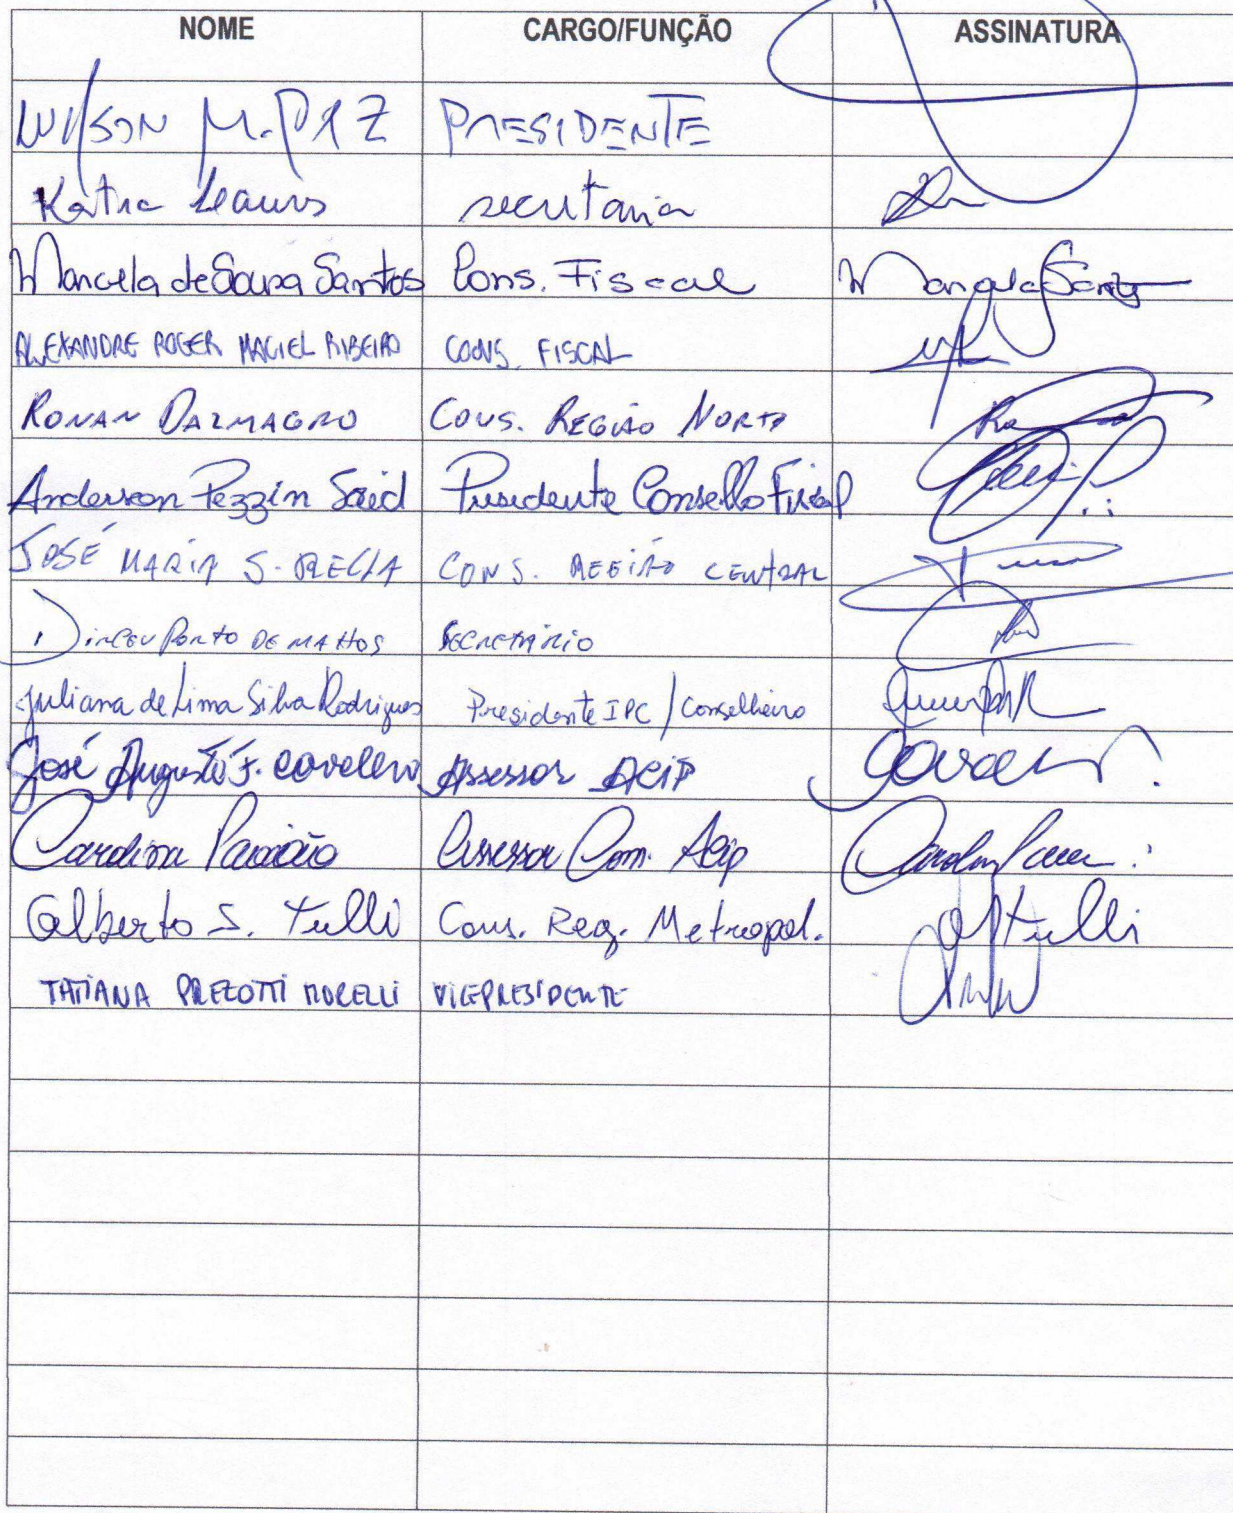 NOME CARGO/FUNÇÃO ASSINATURA
WILSON M. PAZ PRESIDENTE
Katia secretaria
Marcela de Sousa Santos Cons. Fiscal Marcela Santos
ALEXANDRE ROGER MACIEL RIBEIRO CONS. FISCAL
RONAN DALMAGRO CONS. REGIÃO NORTE
Anderson Pezzin Said Presidente Conselho Fiscal
JOSÉ MARIA S. CONS. REGIÃO CENTRAL
DIRCEU PORTO DE MATTOS SECRETÁRIO
Juliana de Lima Silva Rodrigues Presidente IPC / Conselheiro
José Augusto F. Assessor ACIP
Carolina Assessor Com. Acip
Gilberto S. Tulli Cons. Reg. Metropol. Tulli
TATIANA PREZOTTI MORELLI VICEPRESIDENTE